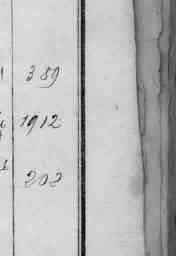 389
1912
202